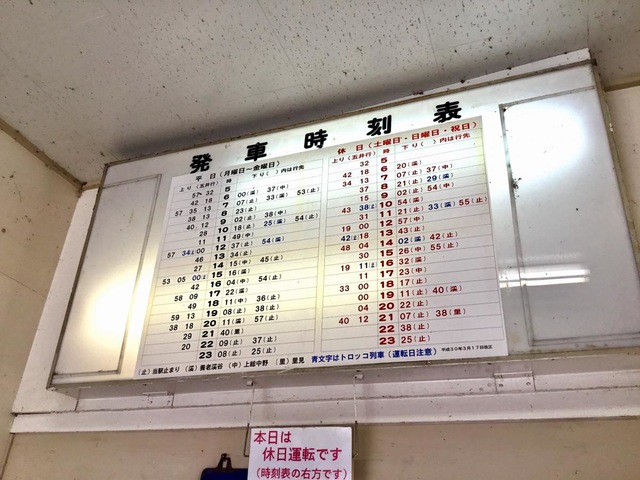 発車時刻表
平日(月曜日～金曜日)
上り(五井行) 時 下り( )内は行先
57 32 5
42 18 6 00(溪) 37(中)
57 35 13 7 07(止) 33(溪) 53(止)
38 13 8 23(止)
40 12 9 02(止) 38(中)
28 10 18(止) 25(溪) 54(止)
11 11 49(中)
57 34 00 12 37(止) 54(溪)
46 13 34(止)
27 14 15(中) 45(止)
53 05 00 15 16(溪)
42 16 04(中) 54(止)
58 09 17 22(溪)
49 18 11(中) 36(止)
59 13 19 08(止) 38(止)
38 18 20 11(溪) 57(止)
29 21 40(里)
20 22 09(止) 37(止)
23 08(止) 25(止)
休日(土曜日・日曜日・祝日)
上り(五井行) 時 下り( )内は行先
32 5
42 18 6 20(溪)
34 13 7 07(止) 37(中)
37 8 21(止) 29(溪)
31 9 02(止) 54(中)
43 38 10 54(溪)
31 11 21(止) 33(溪) 55(止)
19 00 12 57(中)
42 18 13 43(止)
48 04 14 02(溪) 42(止)
30 15 26(中) 55(止)
19 11 16 32(溪)
17 23(中)
33 00 18 17(止)
00 19 11(止) 40(溪)
04 20 22(止)
40 12 21 07(止) 38(里)
22 38(止)
23 25(止)
(止)当駅止まり (溪)養老溪谷 (中)上総中野 (里)里見
青文字はトロッコ列車(運転日注意)
平成30年3月17日改正
本日は
休日運転です
(時刻表の右方です)